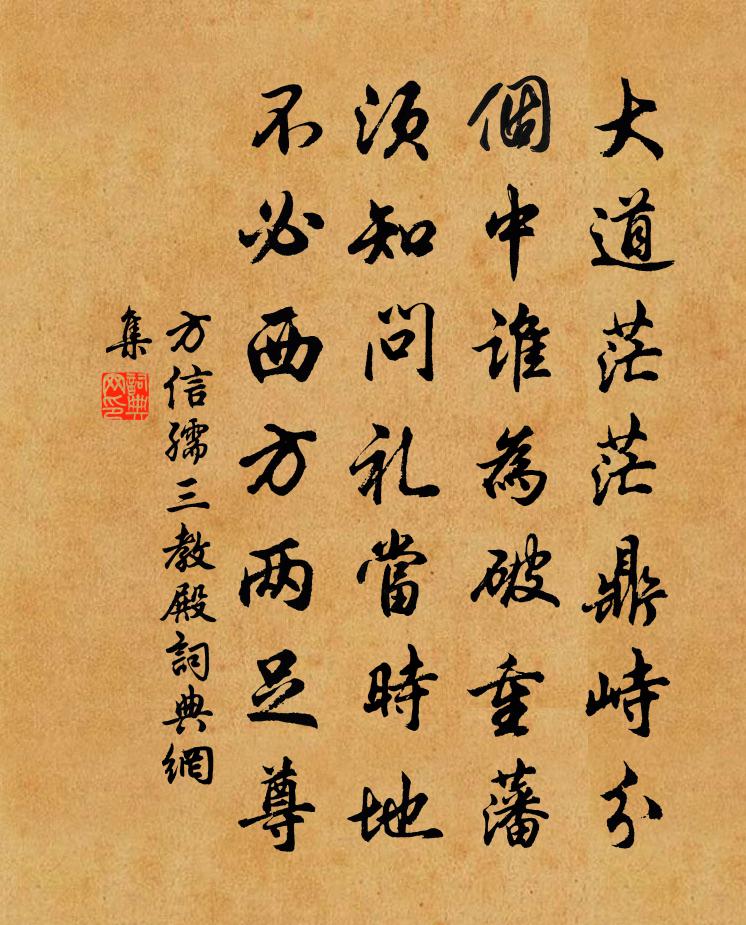 大道茫茫鼎峙分
個中誰為破重藩
須知問礼當時地
不必西方两足尊
方信孺三教殿詞典網
集
詞典
网印